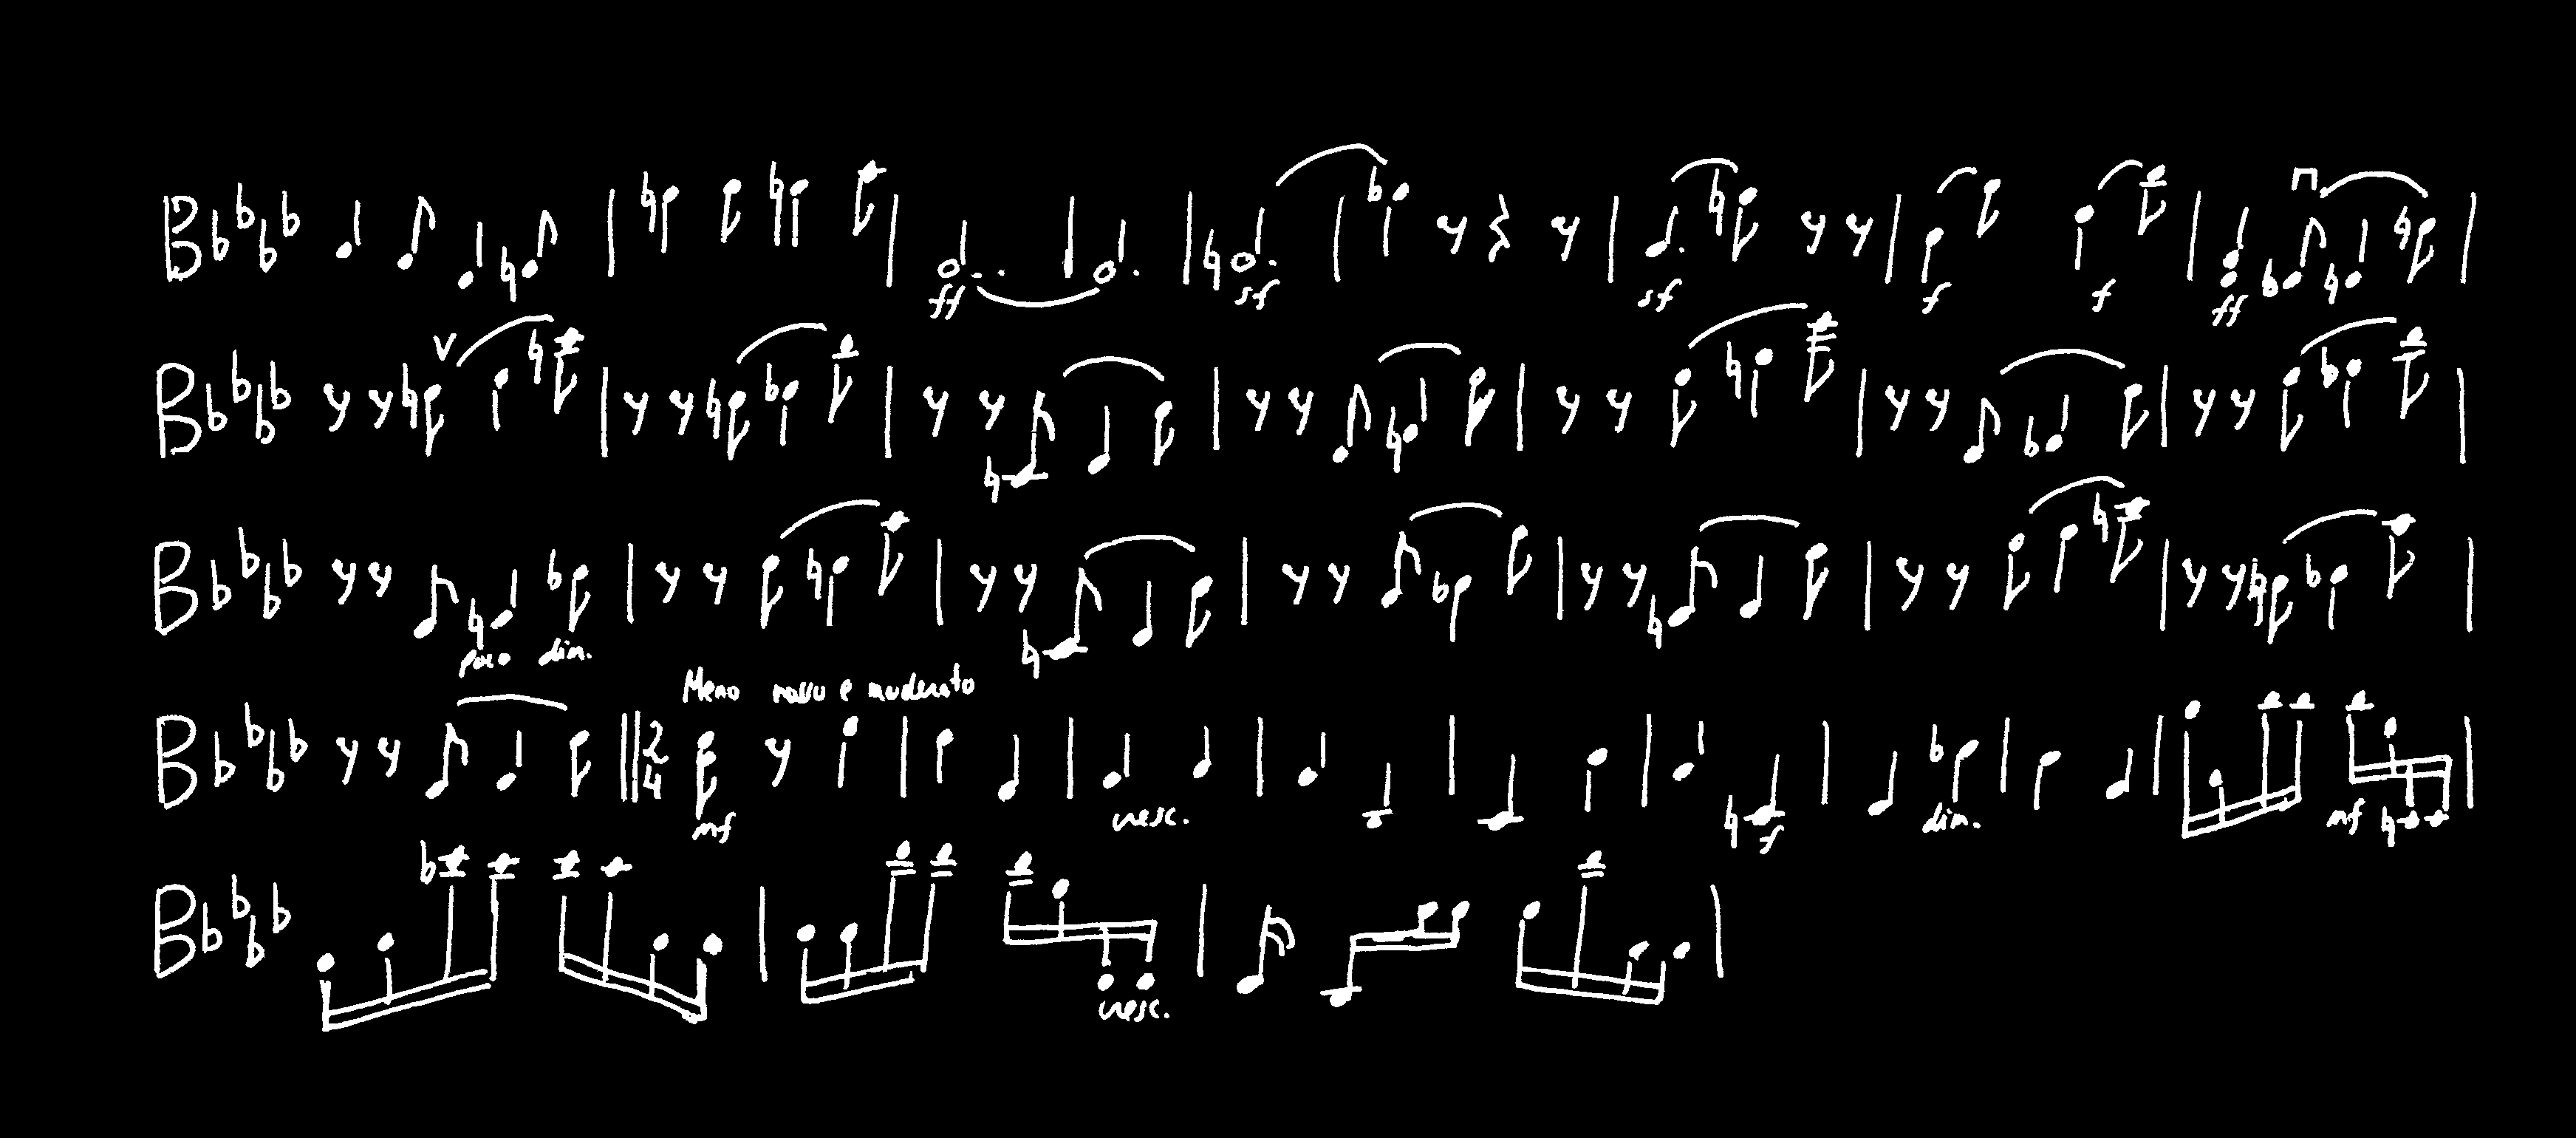 ff sf sf f f ff
poco dim.
Meno mosso e moderato
2/4
mf cresc. f dim. mf
cresc.